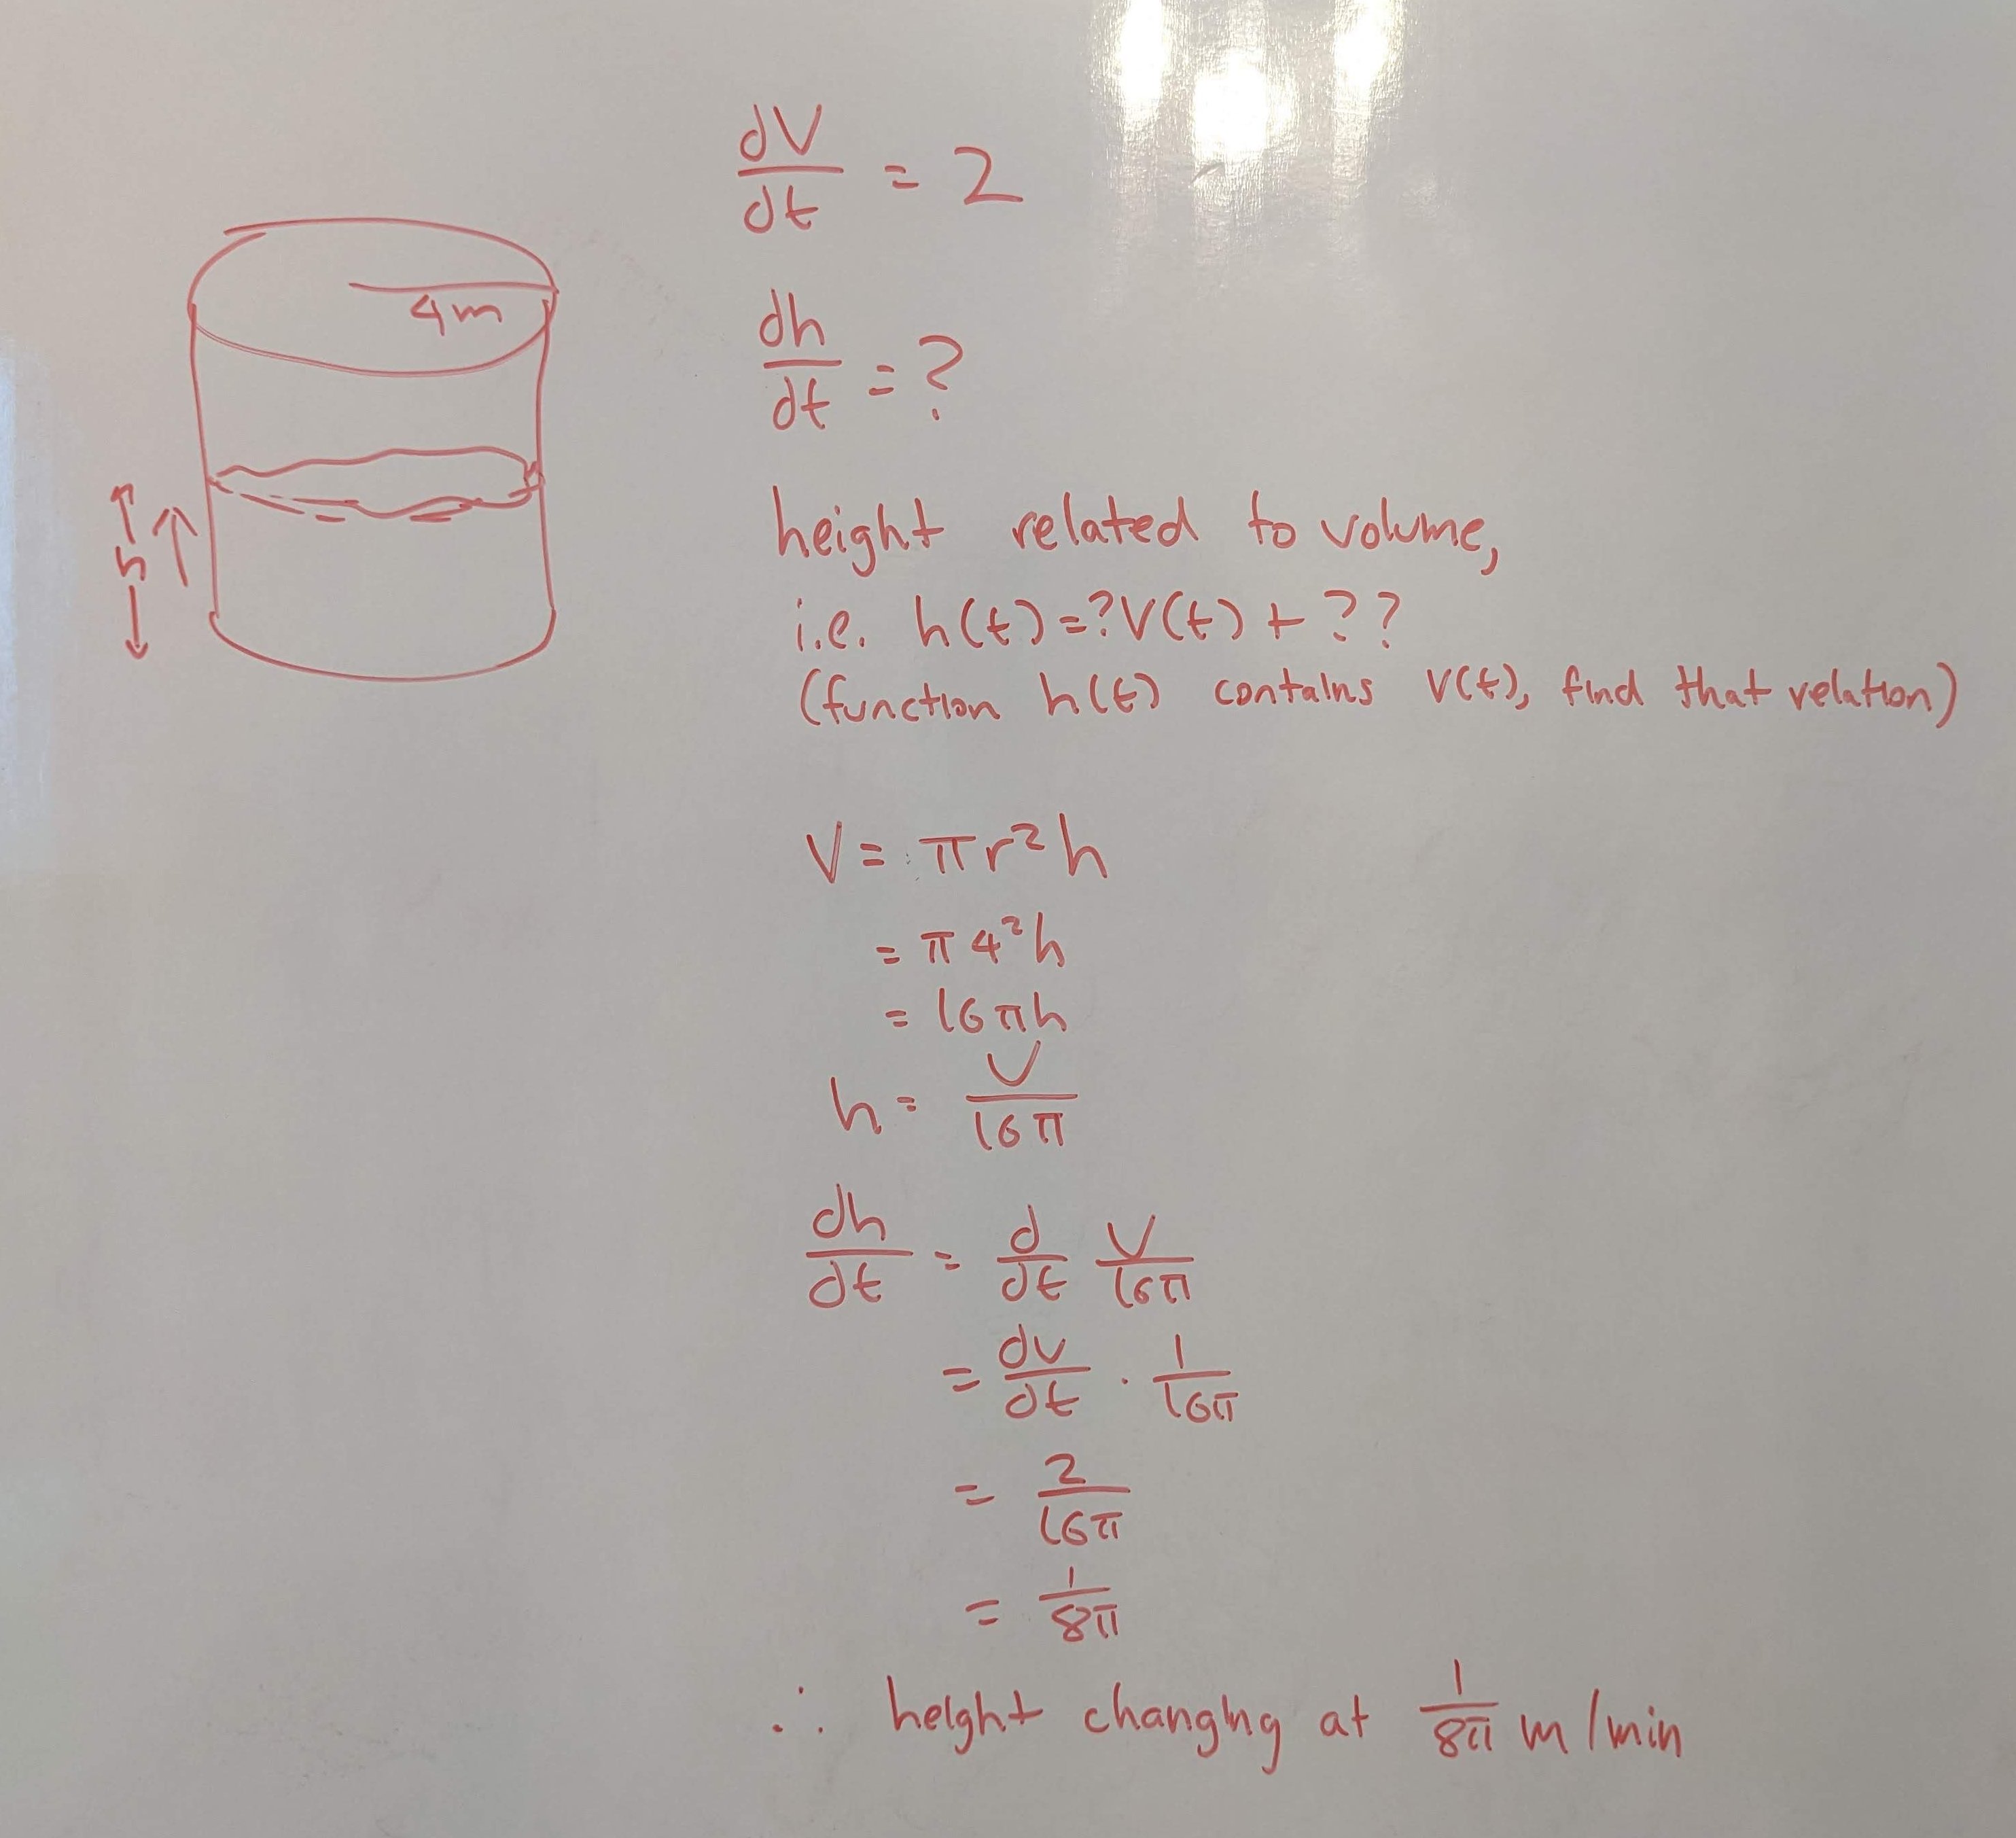 4m
h
dV/dt = 2
dh/dt = ?
height related to volume,
i.e. h(t)=?V(t) + ??
(function h(t) contains V(t), find that relation)
V = πr²h
= π4²h
= 16πh
h = V/16π
dh/dt = d/dt V/16π
= dV/dt · 1/16π
= 2/16π
= 1/8π
∴ height changing at 1/8π m/min